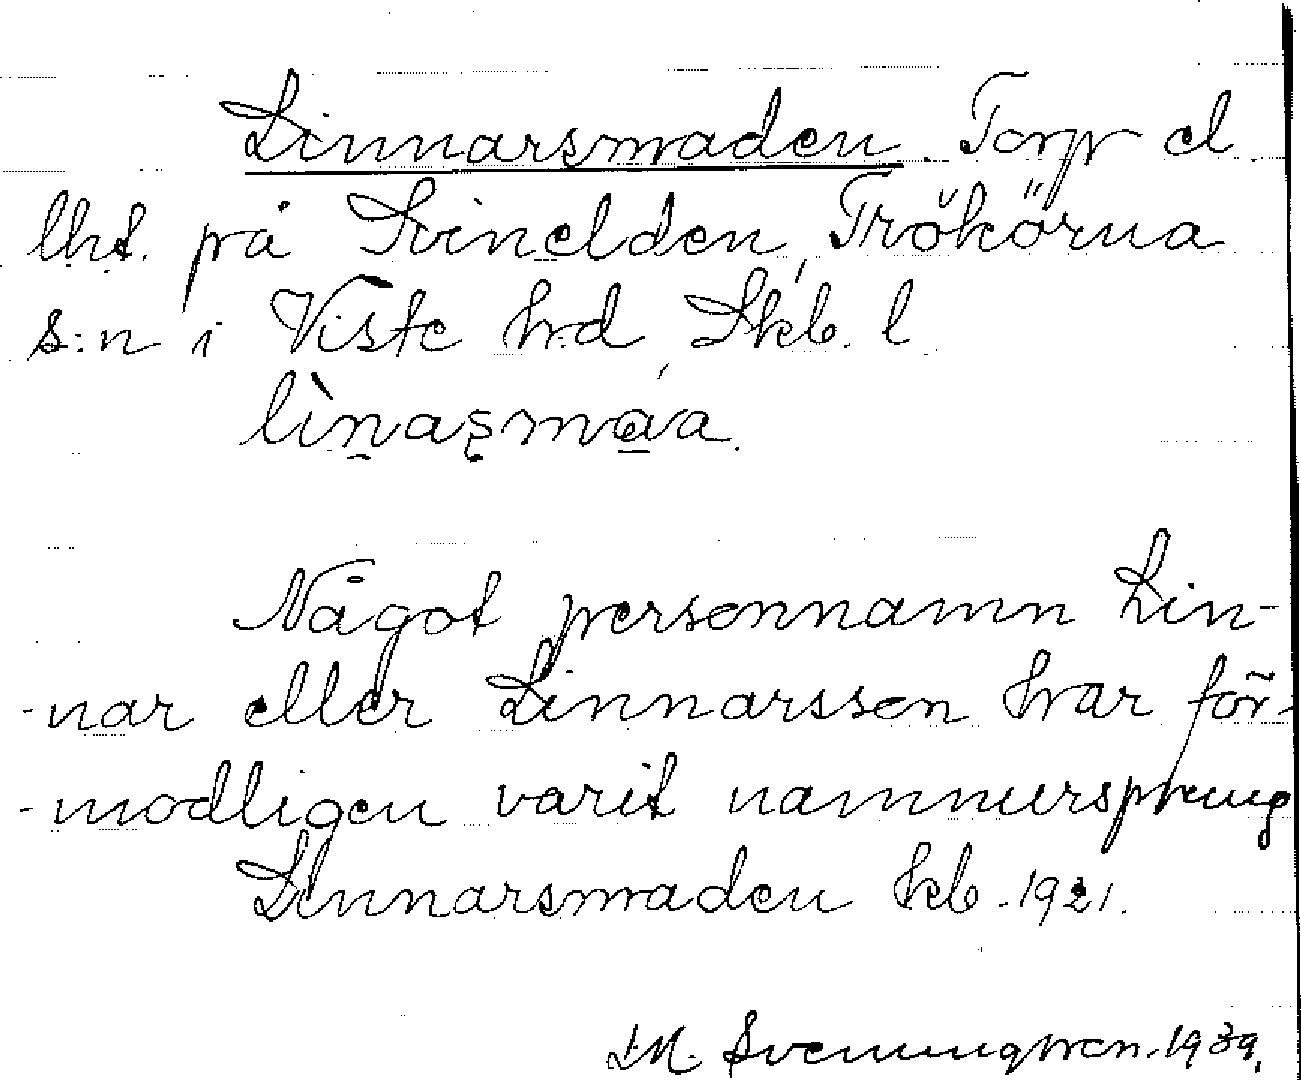 Linnarsmaden. Torp el
lht. på Svinelden, Trökörna
s:n i Viste hrd, Skb. l.
lìnaṣmáa.
Något personnamn Lin-
-nar eller Linnarsson har för-
-modligen varit namnursprung
Linnarsmaden kb. 1921.
Svenningsson. 1939.